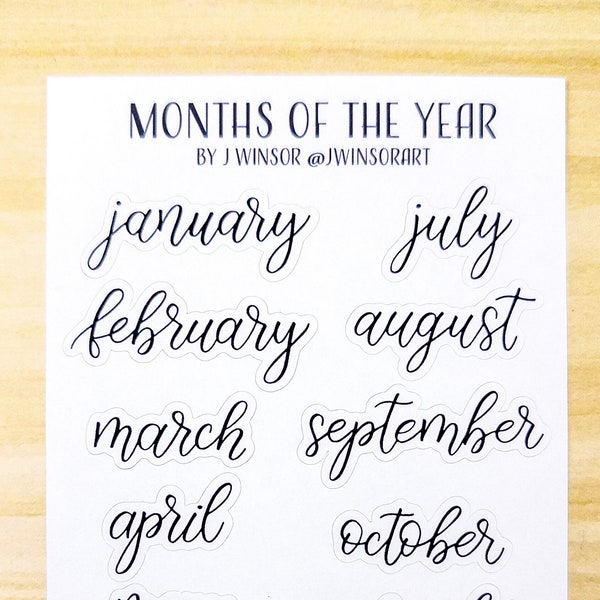 MONTHS OF THE YEAR
BY J WINSOR @JWINSORART
january july
february august
march september
april october